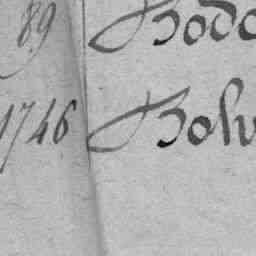 89 Bodo
1746 Bolv